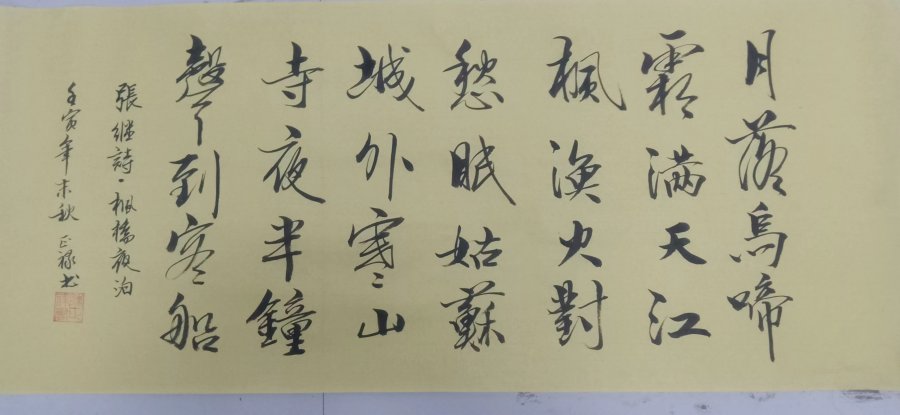 月落烏啼
霜满天江
枫渔火對
愁眠姑蘇
城外寒山
寺夜半鐘
聲到客船
張继詩·枫橋夜泊
壬寅年末秋 正禄书